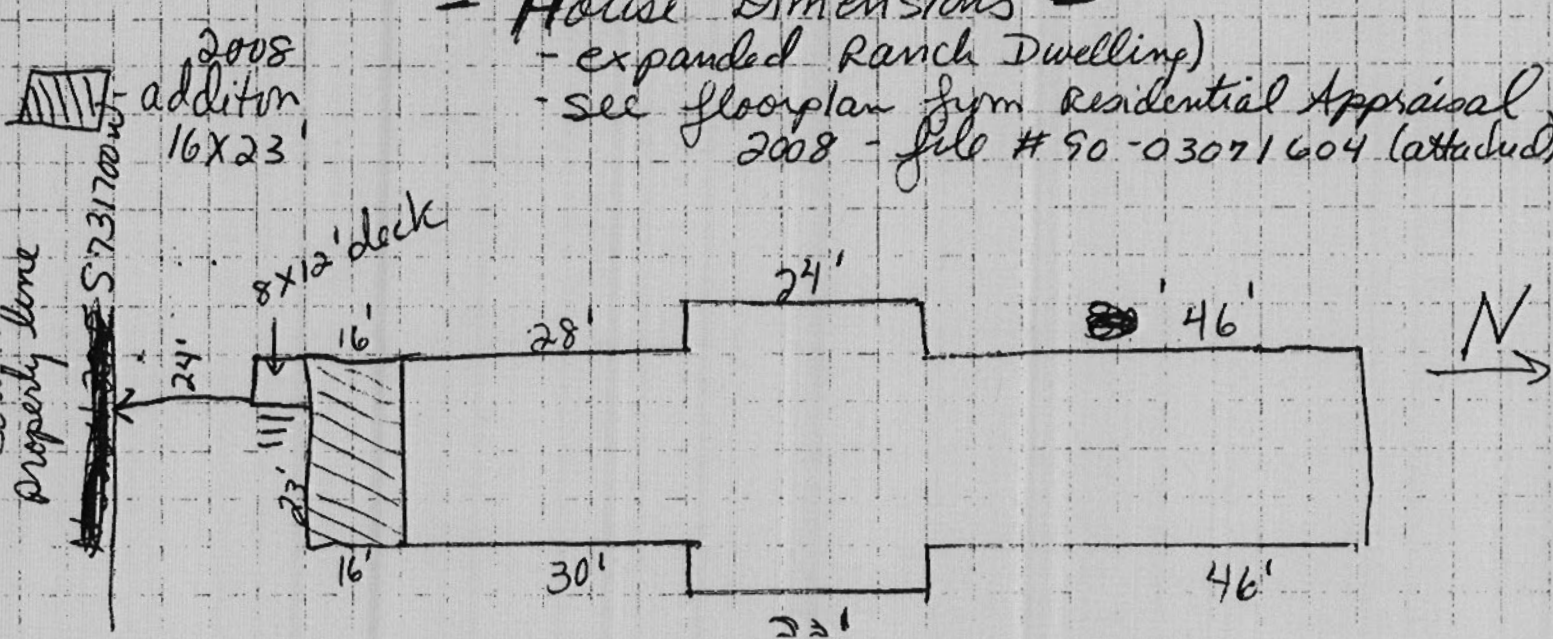 - House Dimensions -
- expanded Ranch Dwelling)
- see floorplan from Residential Appraisal
2008 - file # 90-03071604 (attached)
2008
additon
16X23'
property line
S 73 17 00 W
24'
8X12' deck
16'
28'
24'
46'
N
23'
16'
30'
46'